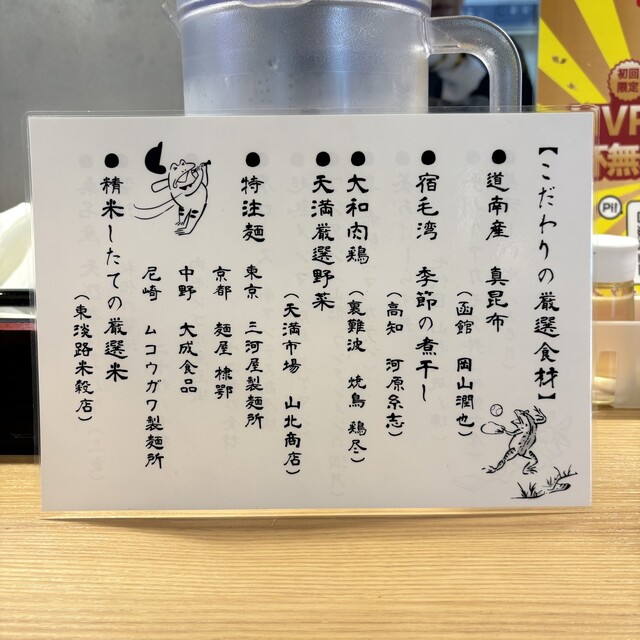 【こだわりの厳選食材】
●道南産 真昆布
（函館 岡山潤也）
●宿毛湾 季節の煮干し
（高知 河原糸志）
●大和肉鶏
（裏難波 焼鳥 鶏尽）
●天満厳選野菜
（天満市場 山北商店）
●特注麺
東京 三河屋製麺所
京都 麺屋 棣鄂
中野 大成食品
尼崎 ムコウガワ製麺所
●精米したての厳選米
（東淡路米穀店）
初回
限定
Pi!